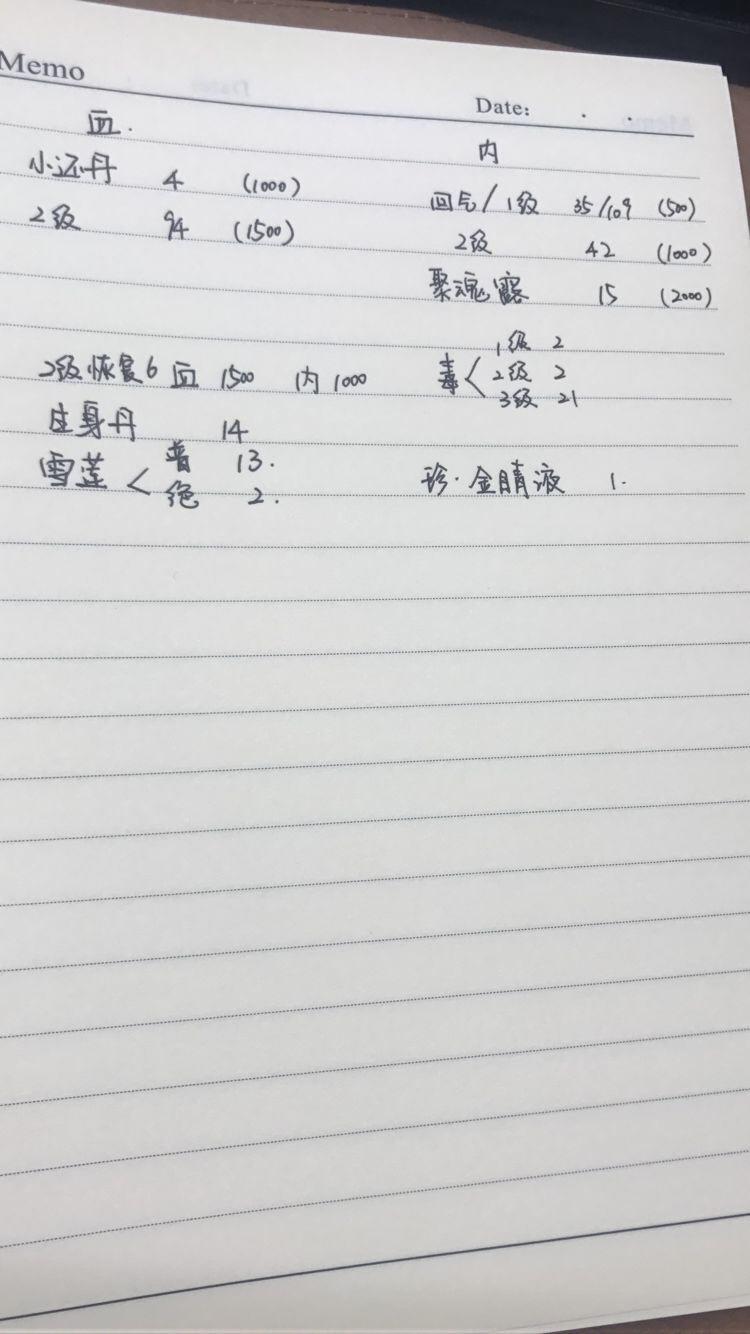 Memo
Date: . .
血.
小还丹 4 (1000)
2级 94 (1500)
内
回气/1级 35/109 (500)
2级 42 (1000)
聚魂露 15 (2000)
2级恢复6 血 1500 内1000
毒<
1级 2
2级 2
3级 21
身丹 14
雪莲<
普 13.
绝 2.
珍·金睛液 1.